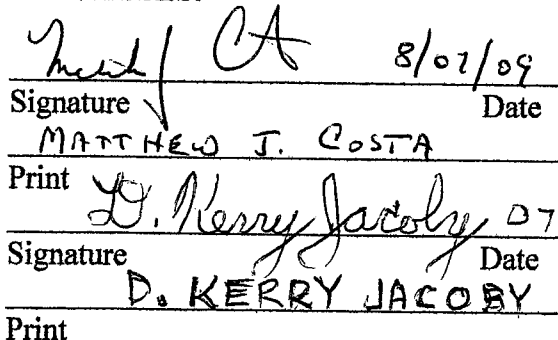 8/07/09
Signature Date
MATTHEW J. COSTA
Print
D. Kerry Jacoby 07
Signature Date
D. KERRY JACOBY
Print